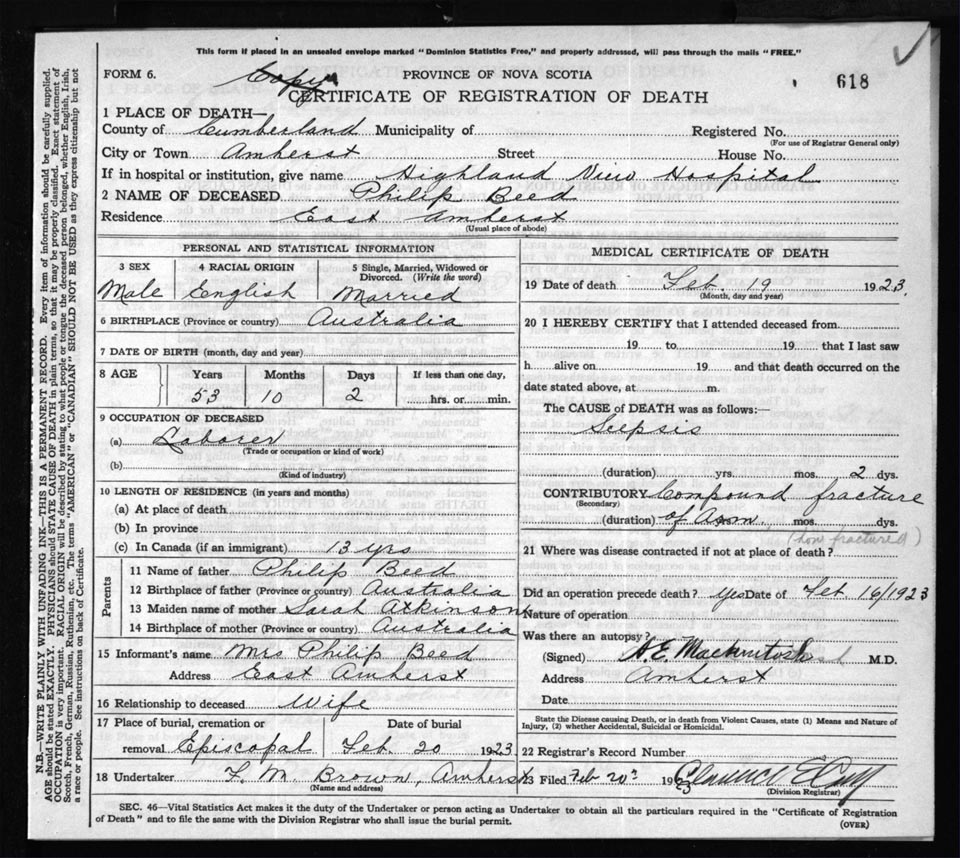 This form if placed in an unsealed envelope marked "Dominion Statistics Free," and properly addressed, will pass through the mails "FREE."
FORM 6.
Copy
PROVINCE OF NOVA SCOTIA
618
CERTIFICATE OF REGISTRATION OF DEATH
1 PLACE OF DEATH—
County of Cumberland Municipality of Registered No.
(For use of Registrar General only)
City or Town Amherst Street House No.
If in hospital or institution, give name Highland View Hospital
2 NAME OF DECEASED Philip Beed
Residence East Amherst
(Usual place of abode)
PERSONAL AND STATISTICAL INFORMATION
3 SEX 4 RACIAL ORIGIN 5 Single, Married, Widowed or Divorced. (Write the word)
Male English Married
6 BIRTHPLACE (Province or country) Australia
7 DATE OF BIRTH (month, day and year)
8 AGE Years Months Days If less than one day,
53 10 2 hrs. or min.
9 OCCUPATION OF DECEASED
(a) Laborer
(Trade or occupation or kind of work)
(b)
(Kind of industry)
10 LENGTH OF RESIDENCE (in years and months)
(a) At place of death
(b) In province
(c) In Canada (if an immigrant) 13 yrs
Parents
11 Name of father Philip Beed
12 Birthplace of father (Province or country) Australia
13 Maiden name of mother Sarah Atkinson
14 Birthplace of mother (Province or country) Australia
15 Informant's name Mrs Philip Beed
Address East Amherst
16 Relationship to deceased Wife
17 Place of burial, cremation or removal Date of burial
Episcopal Feb. 20 1923
18 Undertaker F. M. Brown, Amherst
(Name and address)
MEDICAL CERTIFICATE OF DEATH
19 Date of death Feb. 19 1923
(Month, day and year)
20 I HEREBY CERTIFY that I attended deceased from
19 to 19 that I last saw
h alive on 19 and that death occurred on the
date stated above, at m.
The CAUSE of DEATH was as follows:—
Seepsis
(duration) yrs. mos. 2 dys.
CONTRIBUTORY Compound fracture
(Secondary)
(duration) of Arm mos. dys.
(how fractured)
21 Where was disease contracted if not at place of death?
Did an operation precede death? Yes Date of Feb 16/1923
Nature of operation
Was there an autopsy?
(Signed) A.E. Mackintosh M.D.
Address Amherst
Date
State the Disease causing Death, or in death from Violent Causes, state (1) Means and Nature of
Injury, (2) whether Accidental, Suicidal or Homicidal.
22 Registrar's Record Number
23 Filed Feb 20 1923
(Division Registrar)
SEC. 46—Vital Statistics Act makes it the duty of the Undertaker or person acting as Undertaker to obtain all the particulars required in the "Certificate of Registration
of Death" and to file the same with the Division Registrar who shall issue the burial permit.
(OVER)
N.B.—WRITE PLAINLY WITH UNFADING INK—THIS IS A PERMANENT RECORD. Every item of information should be carefully supplied.
AGE should be stated EXACTLY. PHYSICIANS should STATE CAUSE OF DEATH in plain terms, so that it may be properly classified. Exact statement of
OCCUPATION is very important. RACIAL ORIGIN will be described by stating to what people or tongue the deceased person belonged, whether English, Irish,
Scotch, French, German, Russian, Ruthenian, etc. The terms "AMERICAN" or "CANADIAN" SHOULD NOT BE USED as they express citizenship but not
a race or people. See instructions on back of Certificate.